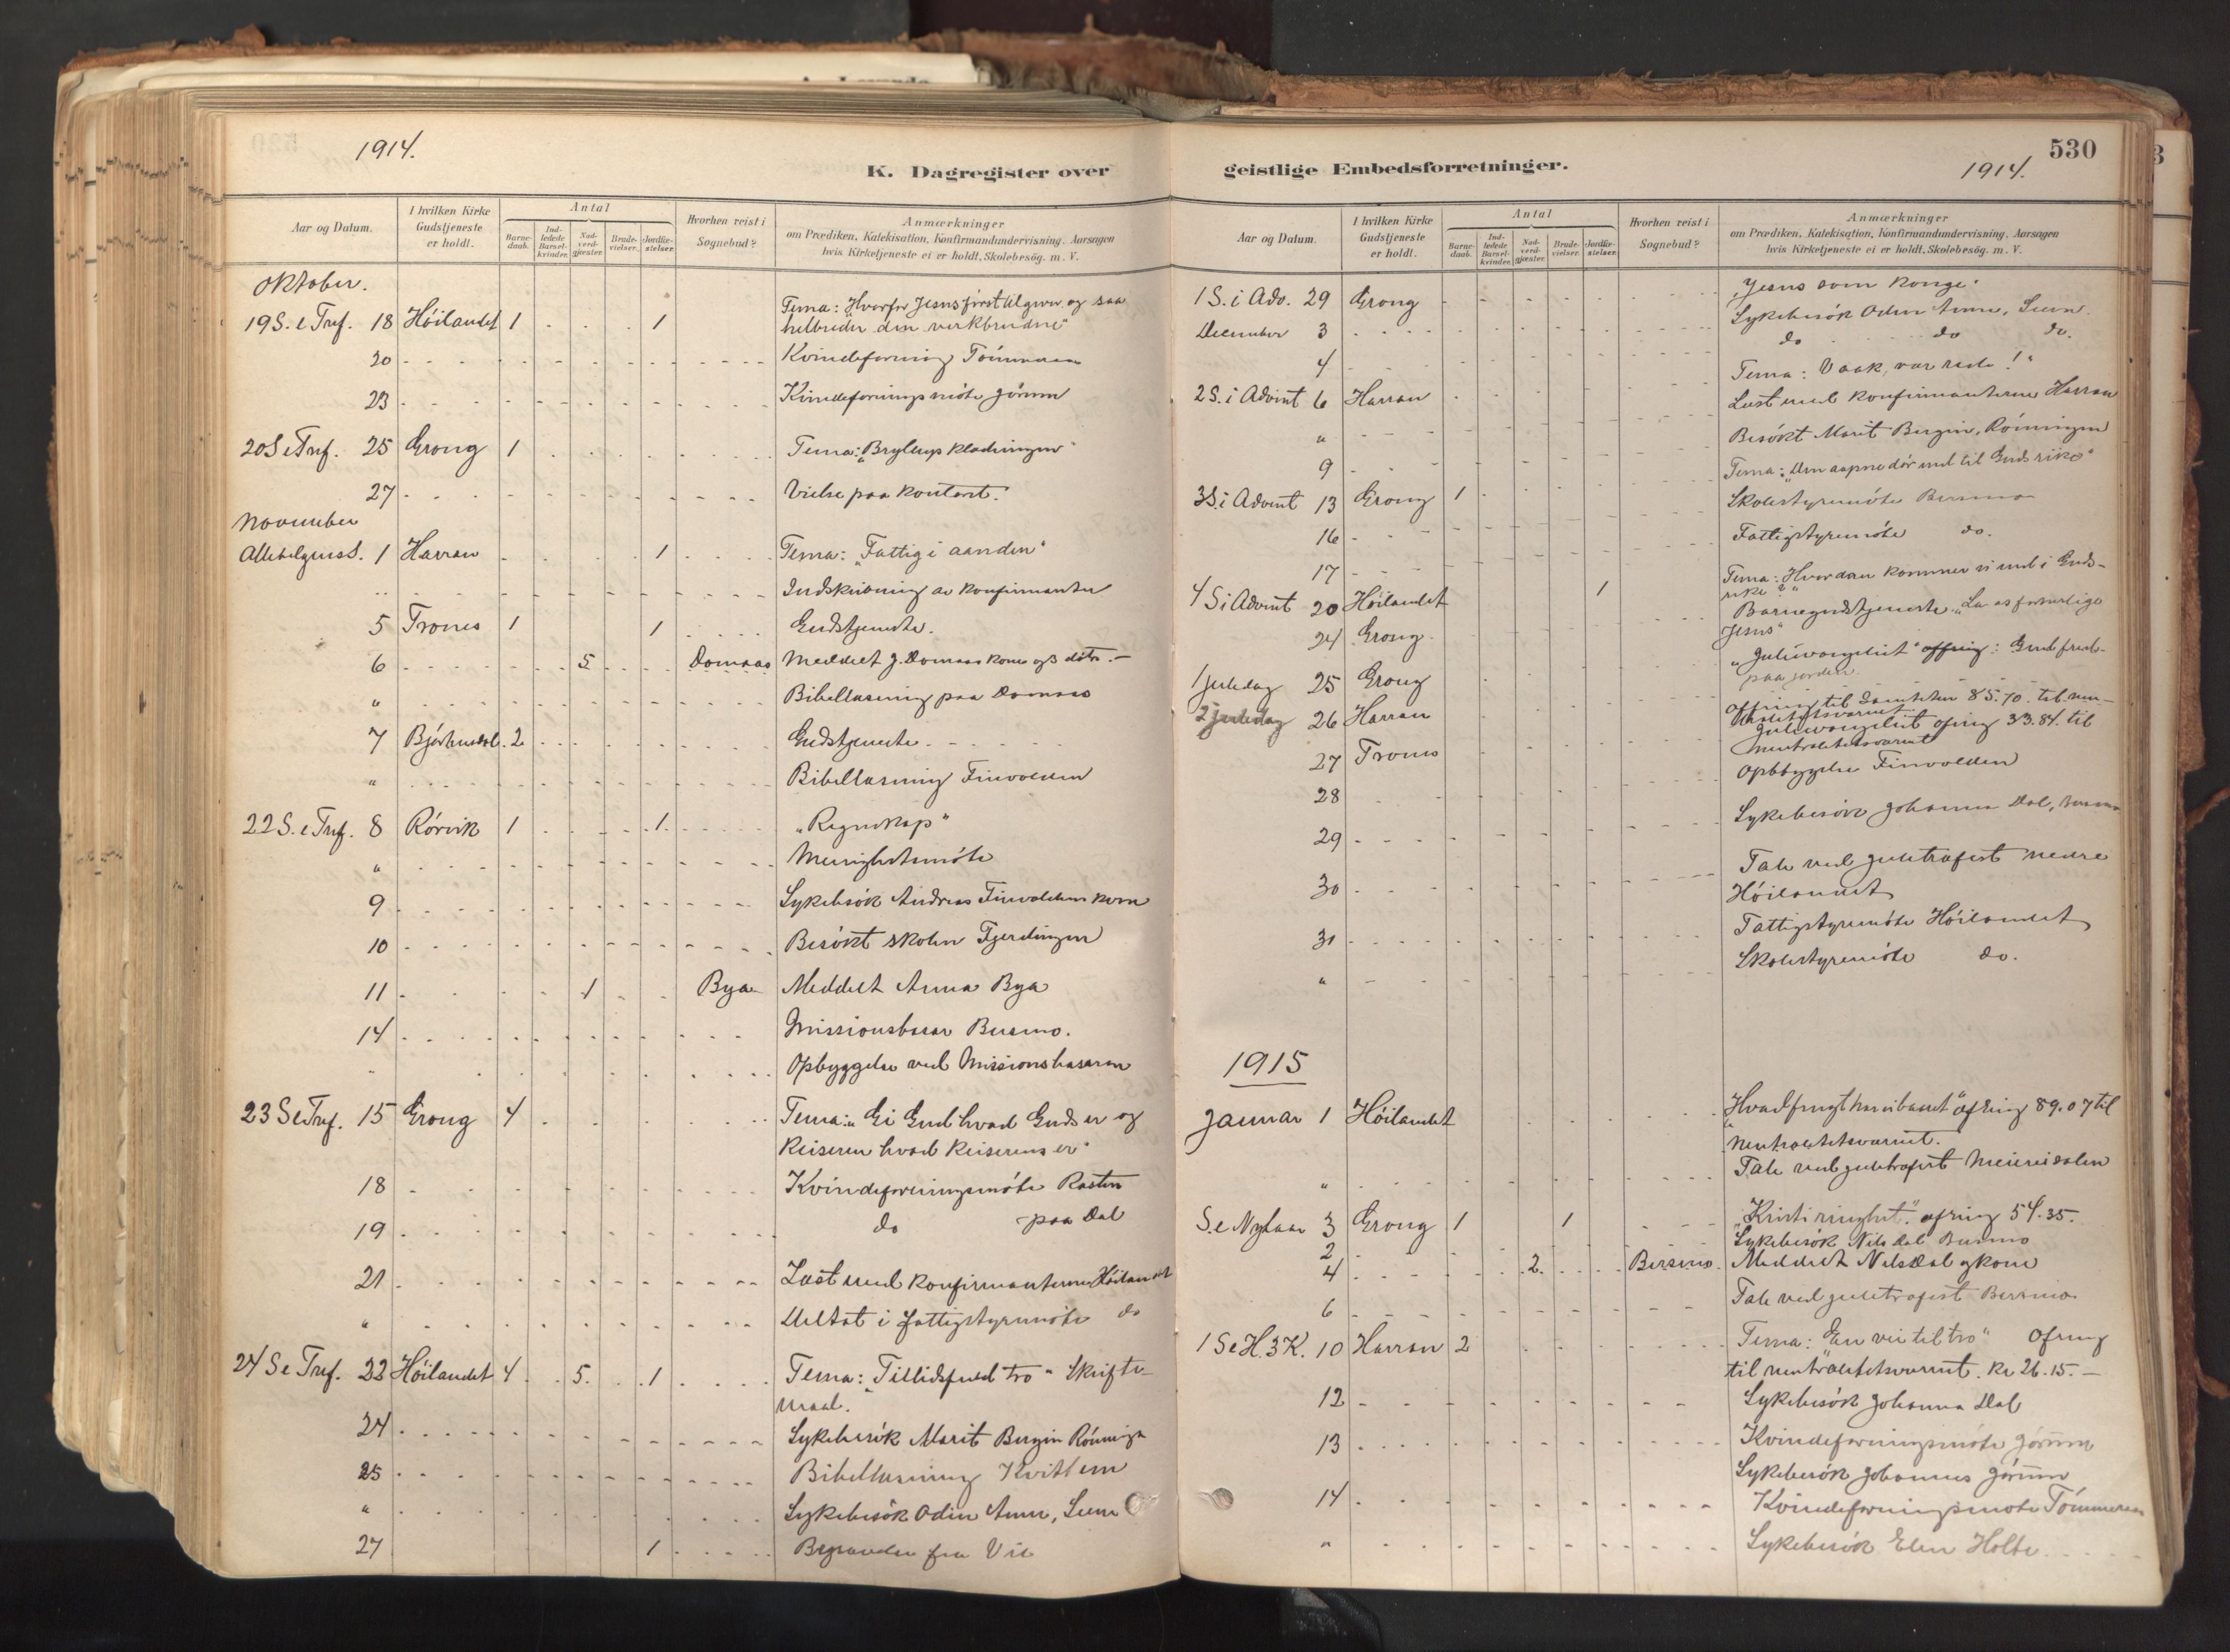 1914.
K. Dagregister over
Aar og Datum.
I hvilken Kirke Gudstjeneste er holdt.
Antal
Barnedaab.
Indledede Barselkvinder.
Nadverdgjæster.
Brudevielser.
Jordfæstelser.
Hvorhen reist i Sognebud?
Anmærkninger
om Prædiken, Katekisation, Konfirmandundervisning, Aarsagen
hvis Kirketjeneste ei er holdt, Skolebesög. m. V.
Oktober.
19 S. e Tref. 18 Höilandet 1 1 Tema: "Hvorfor Jesus først tilgiver og saa
helbreder den verkbrudne"
20 Kvindeforening Tömmeraas
23 Kvindeforeningsmöte Görum
20 S e Tref. 25 Grong 1 Tema: "Bryllupsklædningen"
27 Vielse paa kontoret.
November
Allehelgens S. 1 Harran 1 Tema: "Fattig i aanden"
Indskrivning av konfirmanter
5 Trones 1 1 Gudstjeneste.
6 5 Domaas Meddelt J. Domaas kone og 3 dötre.
" Bibellæsning paa Domaas
7 Bjørhusdal 2 Gudstjeneste
" Bibellæsning Finvolden
22 S. e Tref. 8 Rörvik 1 1 "Regnskap"
" Menighetsmöte
9 Sykebesök Andreas Finvoldens kone
10 Besökt skolen Fjerdingen
11 1 Bya Meddelt Anna Bya
14 Missionsbasar Bersmo.
" Opbyggelse ved Missionsbasaren
23 S e Tref. 15 Grong 4 Tema: "Gi Gud hvad Guds er og
Keiseren hvad Keiserens er"
18 Kvindeforeningsmöte Rosten
19 do paa Dal
21 Læst med konfirmanterne Höilandet
" Deltat i fattigstyremöte do
24 S e Tref. 22 Höilandet 4 5 1 Tema: "Tillidsfuld tro" Skrifte-
maal.
24 Sykebesök Marit Bergin Rönningen
25 Bibellæsning Kvittem
" Sykebesök Odin Aune, Seem
27 1 Begravelse fra Vie
geistlige Embedsforretninger.
530
1914.
Aar og Datum.
I hvilken Kirke Gudstjeneste er holdt.
Antal
Barnedaab.
Indledede Barselkvinder.
Nadverdgjæster.
Brudevielser.
Jordfæstelser.
Hvorhen reist i Sognebud?
Anmærkninger
om Prædiken, Katekisation, Konfirmandundervisning, Aarsagen
hvis Kirketjeneste ei er holdt, Skolebesög. m. V.
1 S. i Adv. 29 Grong "Jesus som konge"
December 3 Sykebesök Odin Aune, Seem.
4 do do do.
2 S. i Advent 6 Harran Tema: Vaak, vær rede!"
" Læst med konfirmanterne Harran
9 Besökt Marit Bergin, Rönningen
3 S. i Advent 13 Grong 1 Tema: "Den aapne dör ind til Guds rike"
16 Skolestyremöte Bersmo
17 Fattigstyremöte do.
4 S i Advent 20 Höilandet 1 Tema: "Hvordan kommer vi ind i Guds-
rike?"
24 Grong Barnegudstjeneste. "La os
Jesus"
1 juledag 25 Grong "Juleevangeliet" offring: Gud fred
paa jorden.
2 juledag 26 Harran Offring til 85.70 til neu-
tralitetsvernet
27 Trones Juleevangeliet ofring 33.84. til
neutralitetsvernet
28 Opbyggelse Finvolden
29 Sykebesök Johanna Dal, Bersmo
30 Tale ved juletræfest nedre
Höilandet
31 Fattigstyremöte Höilandet
" Skolestyremöte do.
1915
Januar 1 Höilandet "Hvad frugt har vi baaret" ofring 89.07 til
neutralitetsvernet.
" Tale ved juletræfest Meierisalen
S. e Nytaar 3 Grong 1 1 "Kristi ringhet". ofring 54.35.
2 Sykebesök Nils Dal Bersmo
4 2 Bersmo. Meddelt Nils Dal og kone
6 Tale ved juletræfest Bersmo
1 S e H. 3 K. 10 Harran 2 Tema: "En vei til tro" Ofring
til neutralitetsvernet. Kr 26.15.
12 Sykebesök Johanna Dal
13 Kvindeforeningsmöte Görum
Sykebesök Johannes Görum
14 Kvindeforeningsmöte Tömmeraas
" Sykebesök Elen Holte